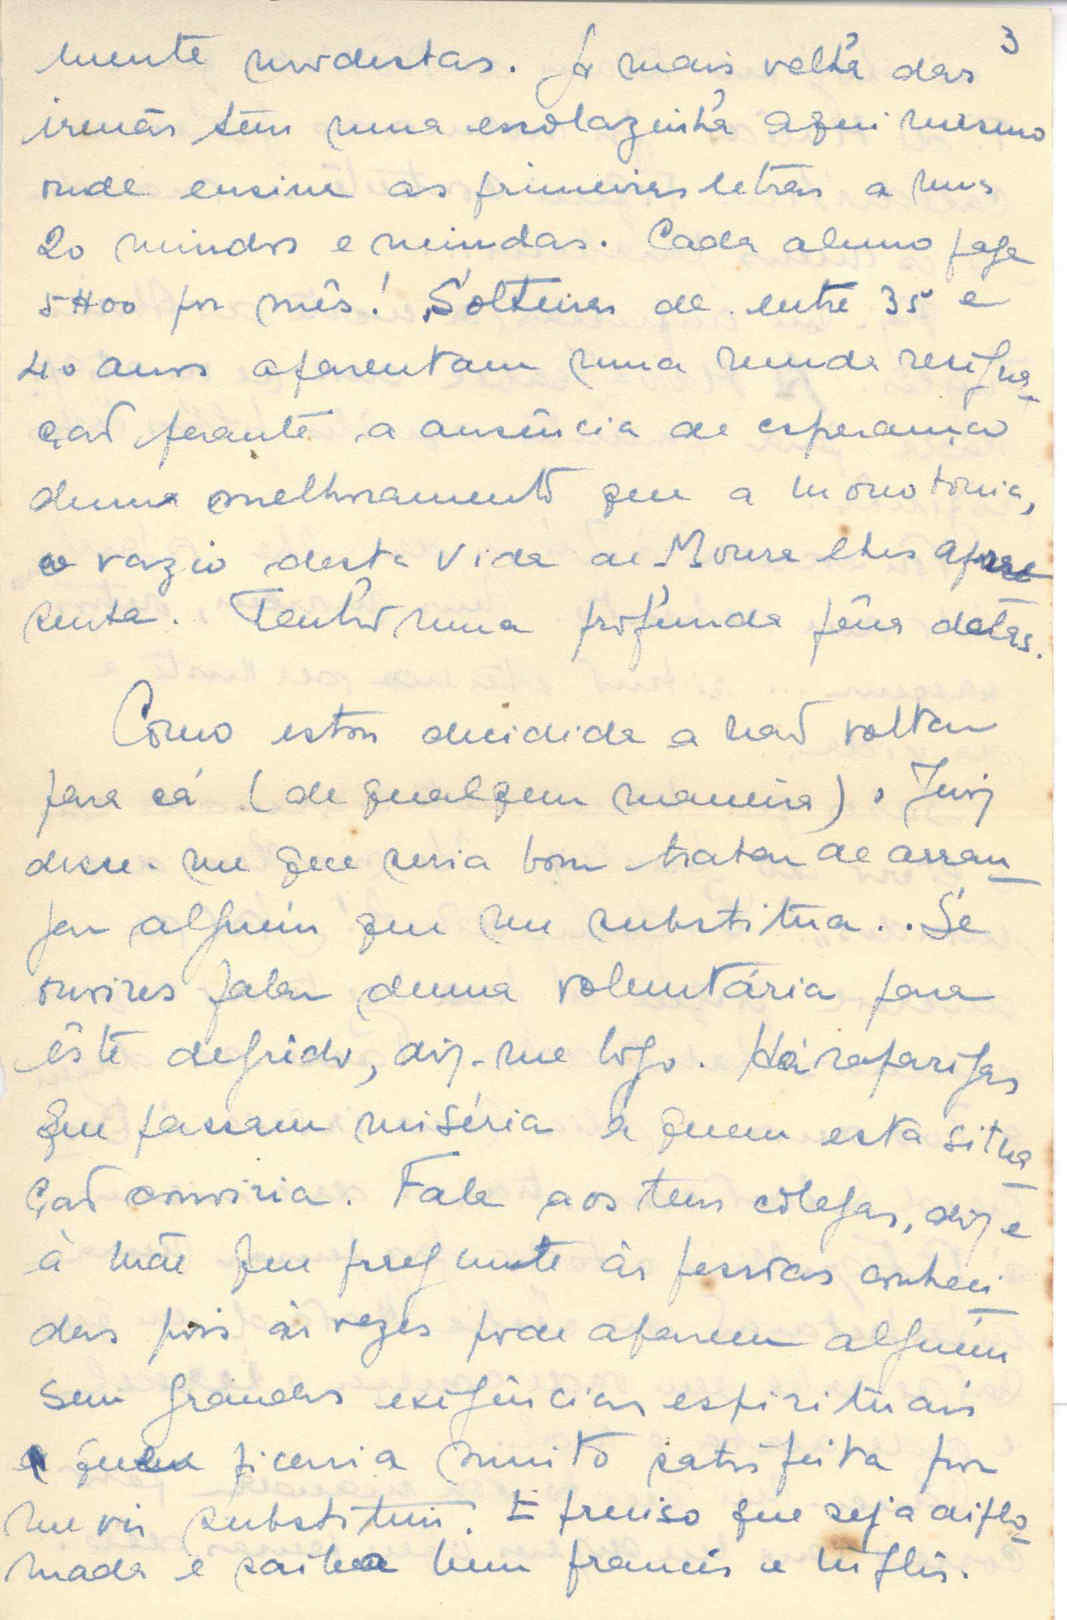 3
mente modestas. A mais velha das
irmãs tem uma escolazinha aqui mesmo
onde ensina as primeiras letras a uns
20 meninos e meninas. Cada aluno paga
5$00 por mês! Solteiras de entre 35 e
40 anos aparentam uma muda resigna-
ção perante a ausência de esperança
dum melhoramento que a monotonia,
o vazio desta vida de Moura lhes apre-
senta. Tenho uma profunda pêna delas.
Como estou decidida a não voltar
para cá (de qualquer maneira),
disse-me que seria bom tratar de arran-
jar alguém que me substitua.. Se
ouvires falar duma voluntária para
êste degrêdo, diz-me logo. Há raparigas
que passam miséria a quem esta situa-
ção conviria. Fala aos teus colegas, diz e
à Mãe que pregunte às pessoas conheci-
das pois às vezes pode aparecer alguém
sem grandes exigências espirituais
e quem ficaria muito satisfeita por
me vir substituir. É preciso que seja diplo-
mada e saiba bem francês e inglês.